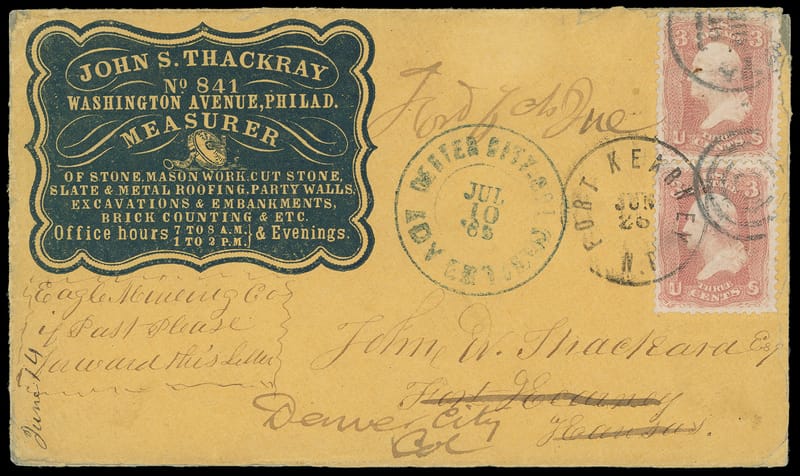 JOHN S. THACKRAY
No 841
WASHINGTON AVENUE, PHILAD.
MEASURER
OF STONE, MASON WORK, CUT STONE,
SLATE & METAL ROOFING, PARTY WALLS,
EXCAVATIONS & EMBANKMENTS,
BRICK COUNTING & ETC.
Office hours 7 TO 8 A.M. 1 TO 2 P.M. & Evenings.
3 3
U THREE CENTS S
3
U THREE CENTS S
DENVER CITY
JUL
10
65
FORT KEARNEY
JUN
26
N.T.
Eagle Mineing Co
if Past Please
forward this Letter
June 14
John W. Thackara Esq
Fort Kearney
Kansas.
Denver City
Col